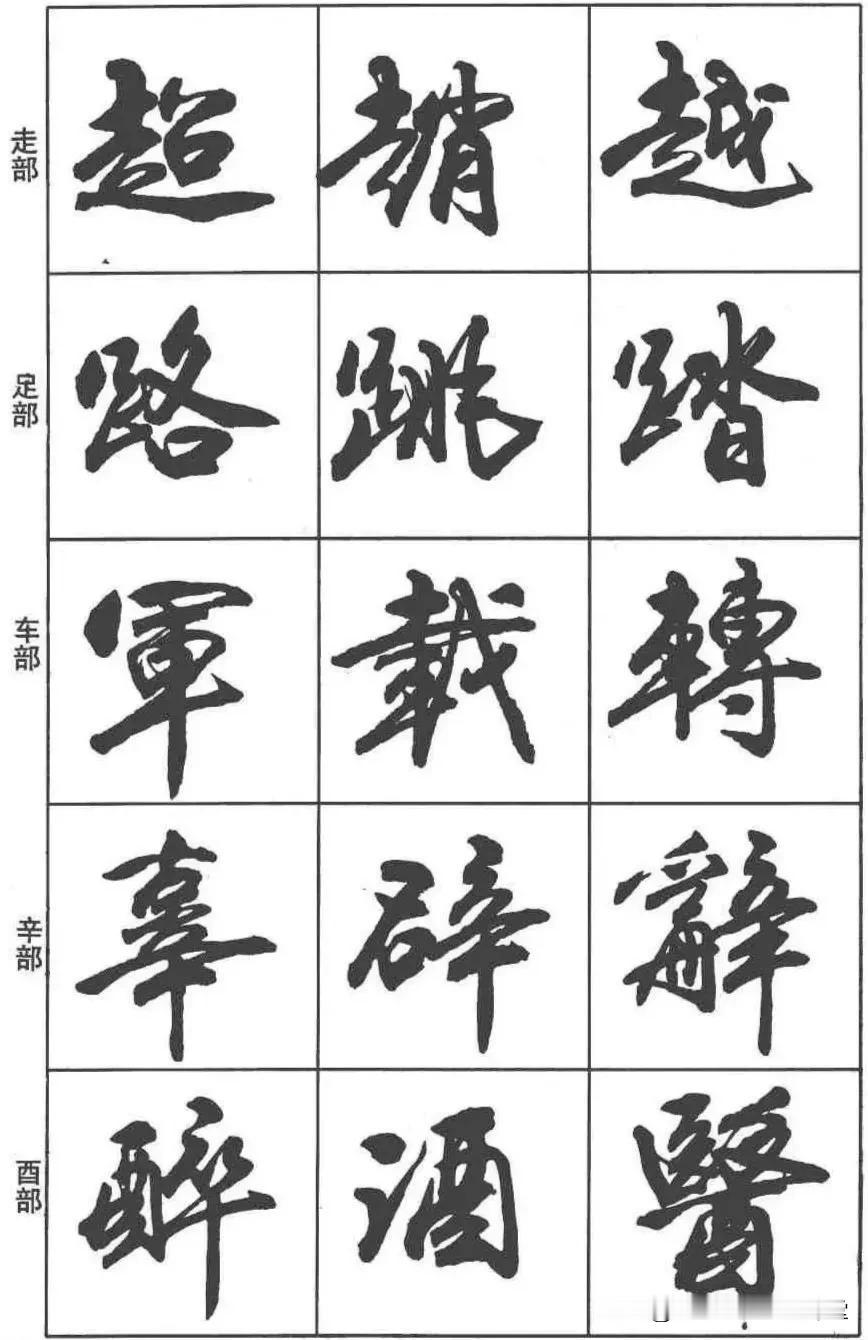 走部 超 趙 越
足部 路 跳 踏
车部 軍 載 轉
辛部 辜 辟 辭
酉部 醉 酒 醫